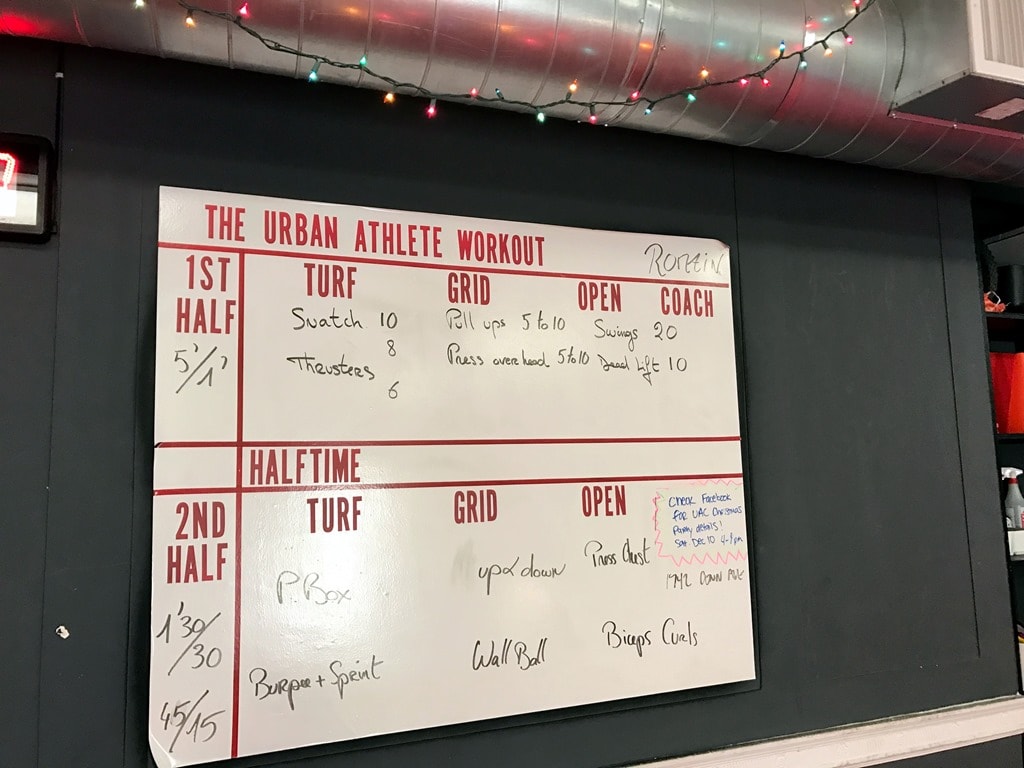 THE URBAN ATHLETE WORKOUT
ROMAIN
1ST HALF
TURF GRID OPEN COACH
5'/1'
Snatch 10
8
Thrusters
6
Pull ups 5 to 10
Press overhead 5 to 10
Swings 20
Dead Lift 10
HALFTIME
2ND HALF
TURF GRID OPEN
Check Facebook
for UAC Christmas
Party details!
Sat Dec 10
1'30/30
45/15
P. Box
up & down
Press Chest
Burpee + Sprint
Wall Ball
Biceps Curls